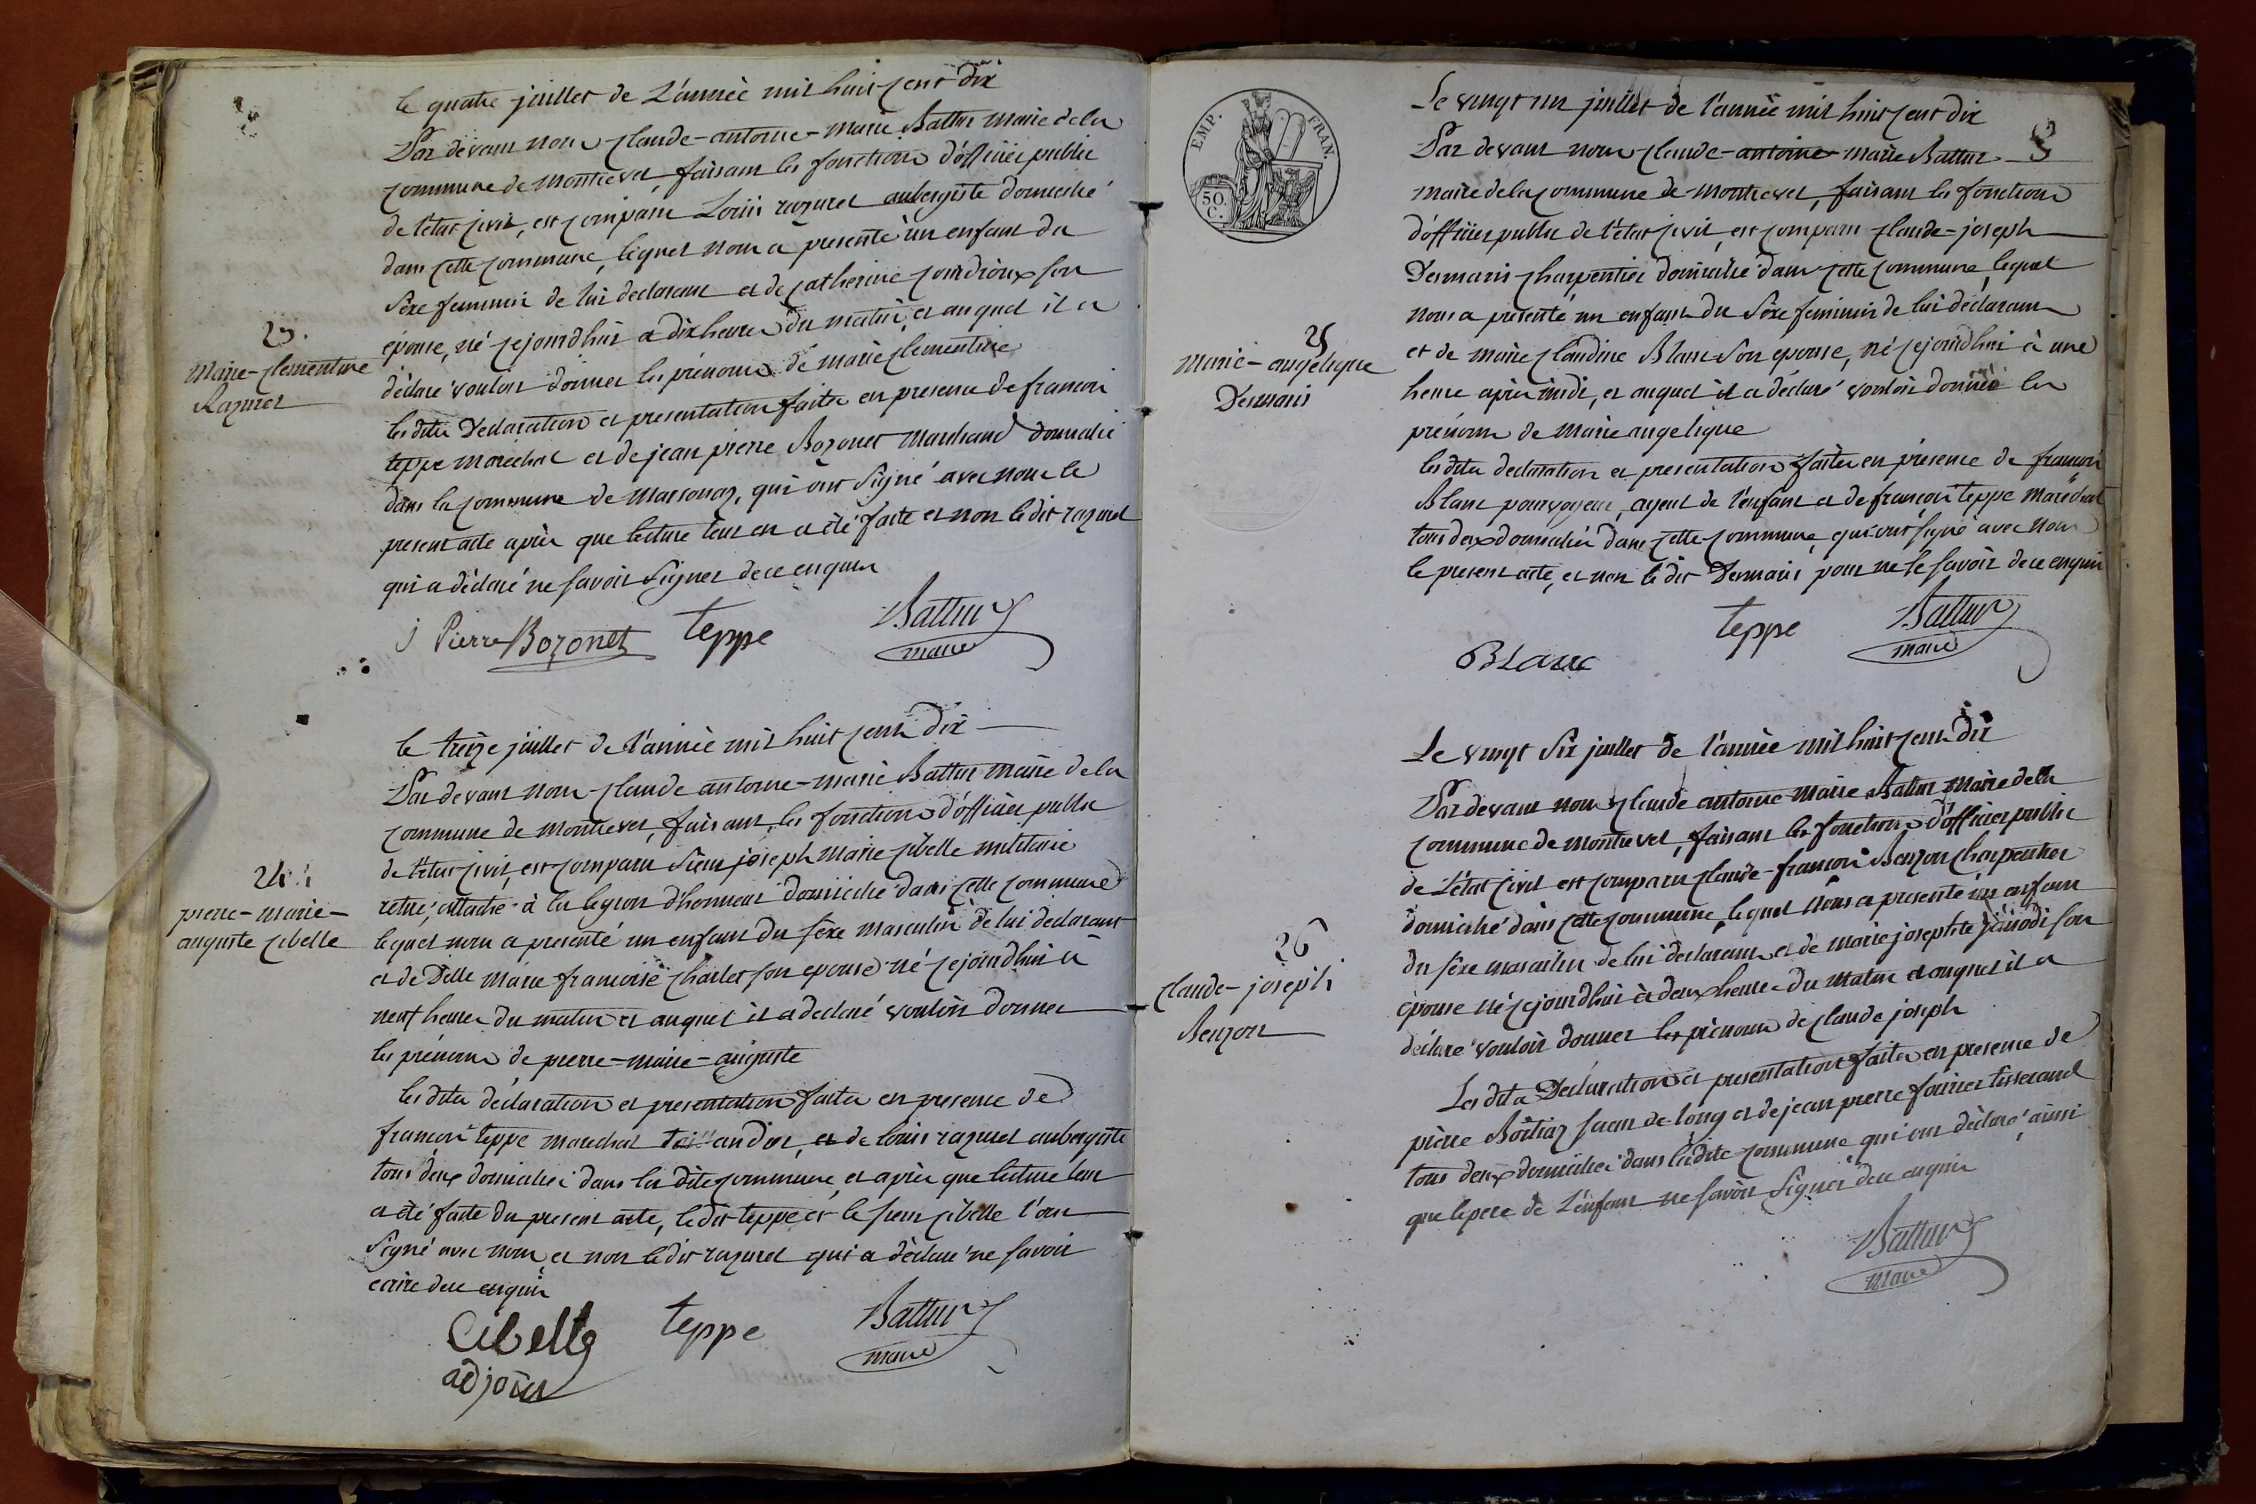 le quatre juillet de L'année mil huit cent dix
Par devant nous claude-antoine-marie Battur maire de la
commune de montrevel, faisant les fonctions d'officier public
de l'état civil, est comparu Louis razurel aubergiste domicilié
dans cette commune, lequel nous a presenté un enfant du
sexe feminin de lui declarant et de catherine son
épouse, né cejourdhui a dix heures du matin, et auquel il a
déclaré vouloir donner les prénoms de marie clementine
les dites Declaration et presentation faites en presence de francois
teppe maréchal et de jean pierre Bozonet marchand domicilié
dans la commune de marsonas, qui ont signé avec nous le
present acte après que lecture leur en a été faite et non le dit razurel
qui a déclaré ne savoir signer de ce enquis
23.
Marie-clementine
Razurel
j Pierre Bozonet teppe Battur
maire
le treize juillet de l'année mil huit cent dix
Par devant nous claude antoine-marie Battur maire de la
commune de montrevel, faisant les fonctions d'officier public
de l'état civil, est comparu sieur joseph marie cibelle militaire
retiré, attaché à la legion dhonneur domicilié dans cette commune
lequel nous a presenté un enfant du sexe masculin de lui declarant
et de Delle marie francoise charlet son epouse né cejourdhui à
neuf heures du matin et auquel il a declaré vouloir donner
les prénoms de pierre-marie-auguste
les dites déclaration et presentation faites en presence de
françois teppe marechal taillandier, et de louis razurel aubergiste
tous deux domiciliés dans la dite commune, et après que lecture leur
a été faite du present acte, ledit teppe et le sieur cibelle l'ont
signé avec nous, et non ledit razurel qui a déclaré ne savoir
ecrire de ce enquis
24.
pierre-marie-
auguste cibelle
Cibelle teppe Battur
adjoint maire
EMP. FRAN.
50.
C.
Le vingt un juillet de l'année mil huit cent dix
Par devant nous claude-antoine-marie Battur
maire de la commune de montrevel, faisant les fonctions
d'officier public de l'état civil, est comparu claude-joseph
Desmaris charpentier domicilié dans cette commune, lequel
nous a présenté un enfant du sexe feminin de lui déclarant
et de marie claudine Blanc son epouse, né cejourdhui à une
heure après midi, et auquel il a déclaré vouloir donner les
prénoms de marie angelique
les dites declaration et presentation faites en présence de françois
Blanc pourvoyeur, ayeul de l'enfant et de françois teppe maréchal
tous deux domiciliés dans cette commune, qui ont signé avec nous
le present acte, et non le dit Desmaris pour ne le savoir de ce enquis
25
marie-angelique
Desmaris
Blanc teppe Battur
maire
Le vingt six juillet de l'année mil huit cent dix
Par devant nous claude antoine marie Battur maire de la
commune de montrevel, faisant les fonctions d'officier public
de L'état civil est comparu claude-françois Benzon charpentier
domicilié dans cette commune, lequel nous a presenté un enfant
du sexe masculin de lui declarant et de marie josephte son
épouse né cejourdhui à deux heures du matin et auquel il a
déclaré vouloir donner les prénoms de claude joseph
Les dites Declaration et presentation faites en presence de
pierre scieur de long et de jean pierre tisserand
tous deux domiciliés dans ladite commune qui ont déclaré ainsi
que le pere de L'enfant ne savoir signer de ce enquis
26
claude-joseph
Benzon
Battur
maire